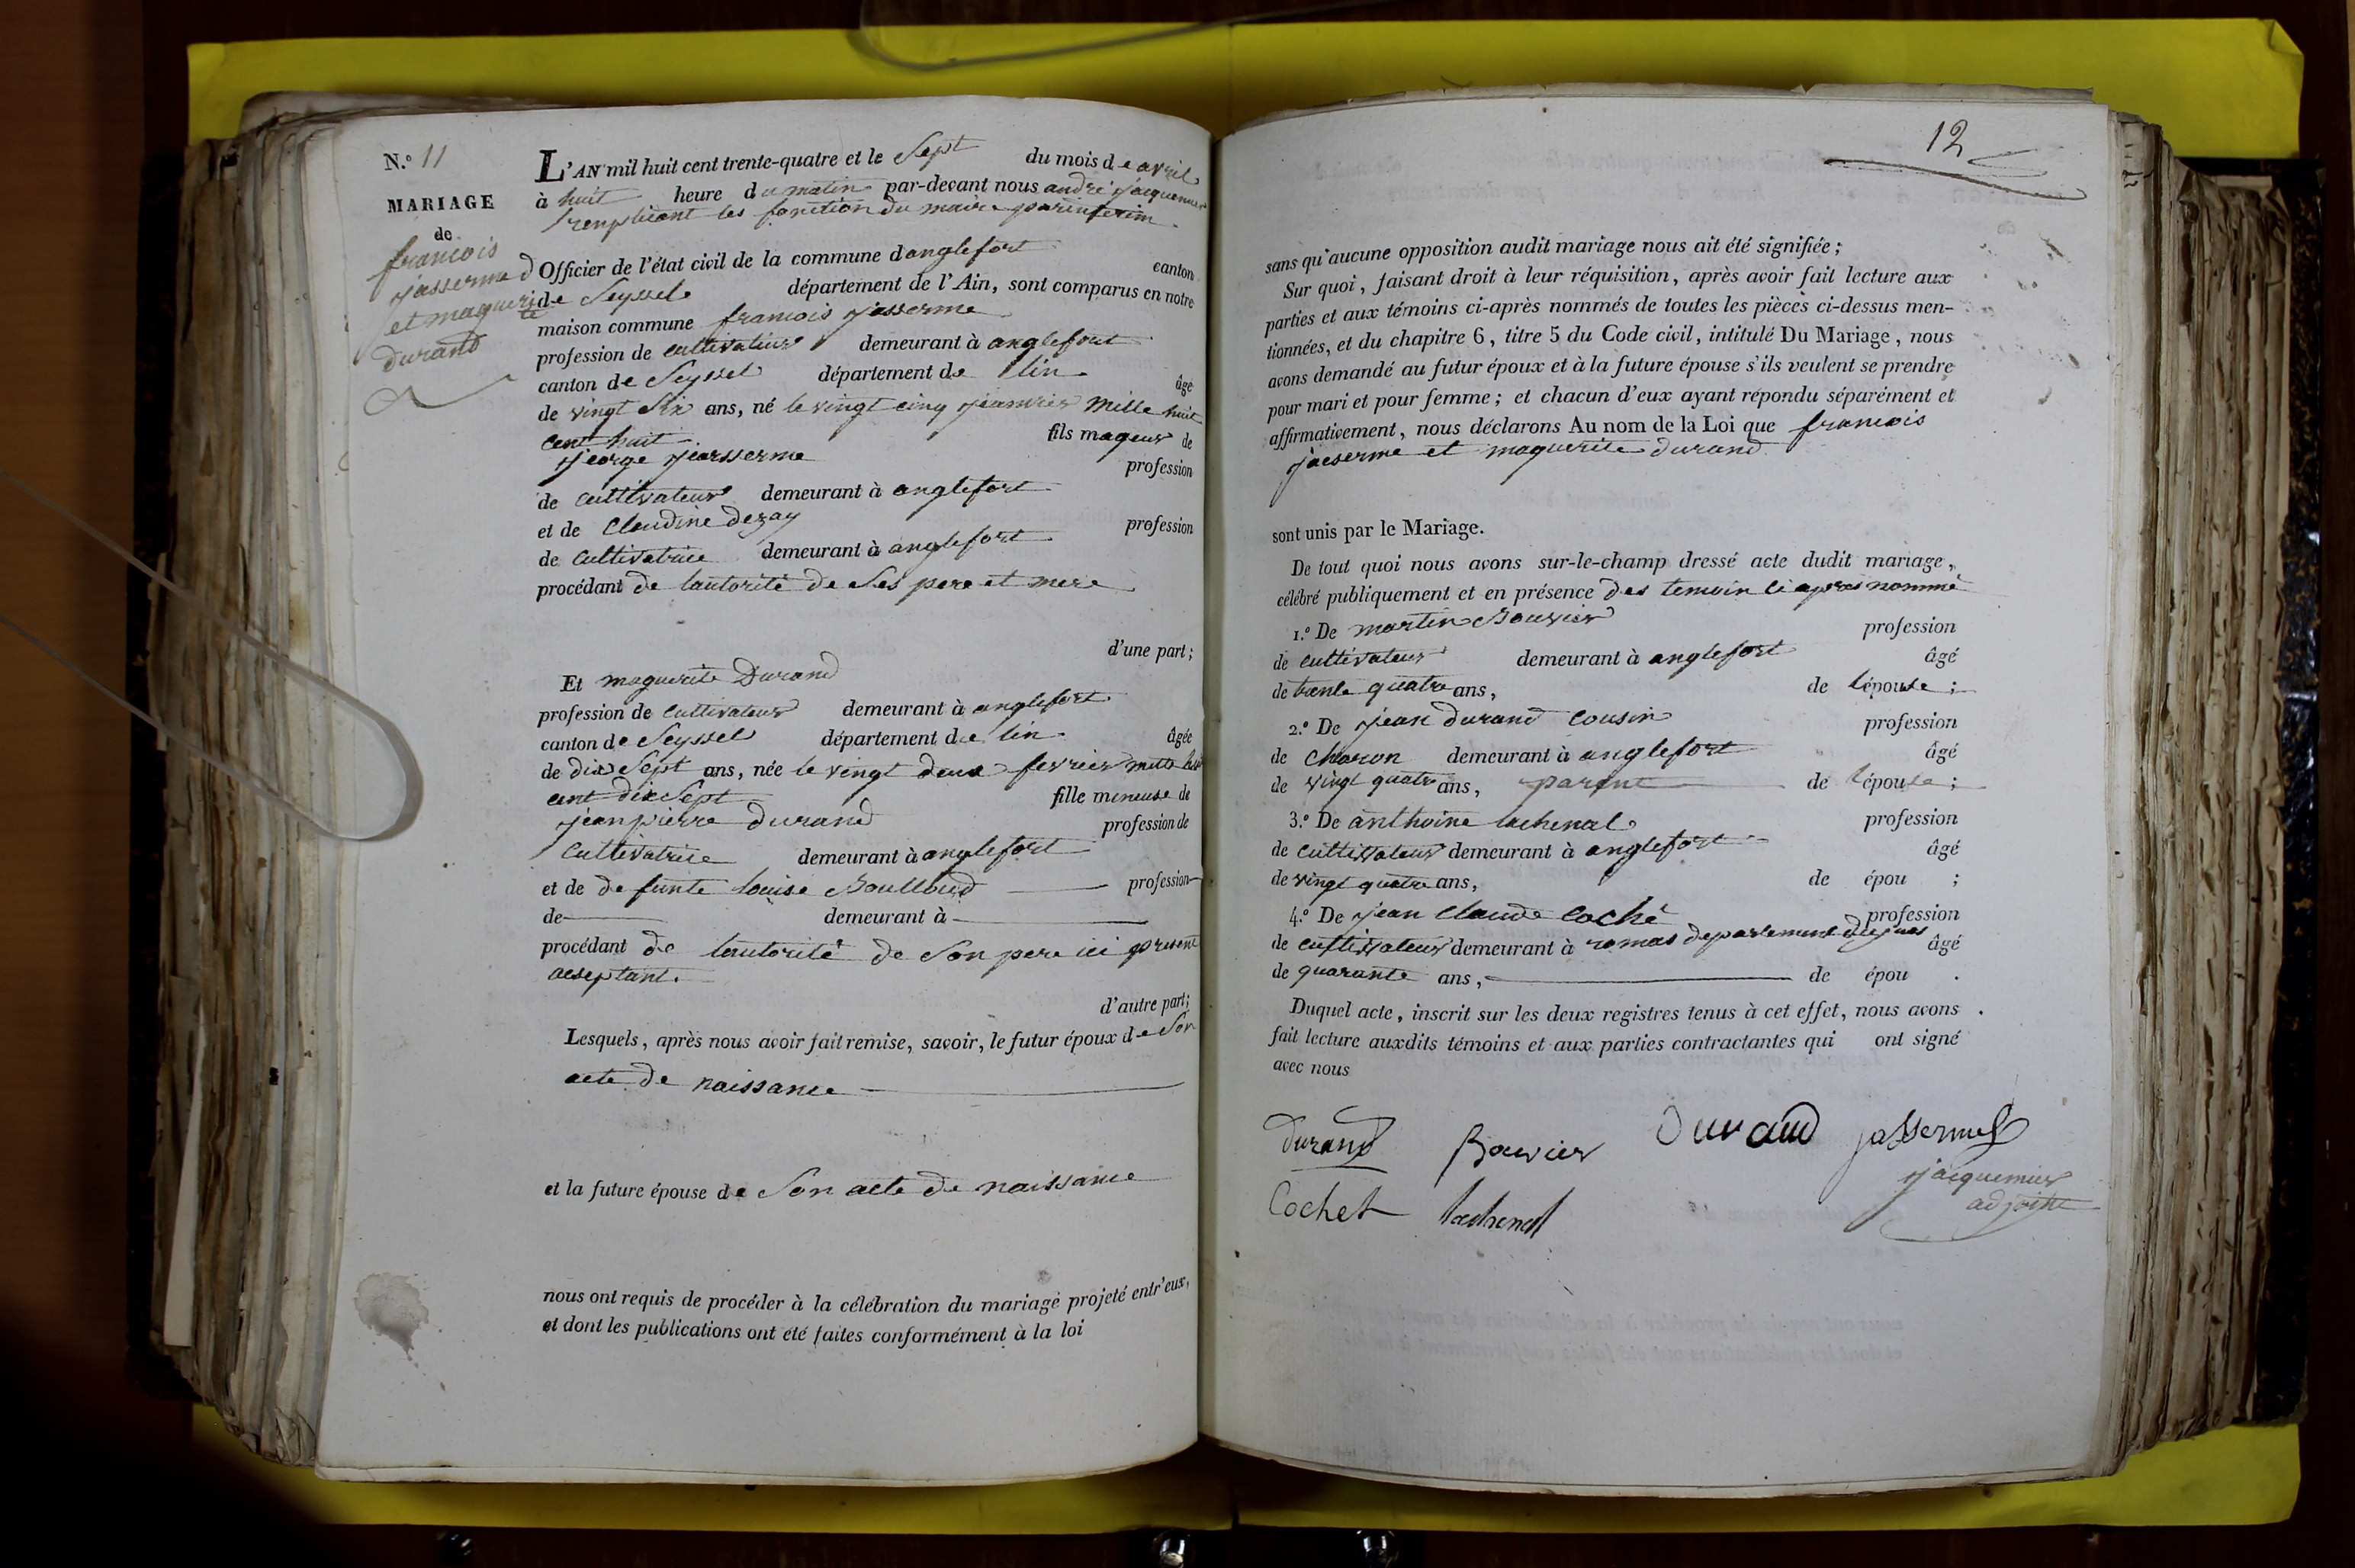 N.º 11
MARIAGE
de
francois
jasserme d
et magueri
te
durand
L'AN mil huit cent trente-quatre et le Sept du mois de avril
à huit heure du matin par-devant nous andré jacquemier
remplicant les fonction du maire par interim
Officier de l'état civil de la commune danglefort canton
de Seyssel département de l'Ain, sont comparus en notre
maison commune francois jasserme
profession de cultivateur demeurant à anglefort
canton de Seyssel département de lin âgé
de vingt Six ans, né le vingt cinq jeanvier mille huit
cent huit fils mageur de
jeorge jearsserme profession
de cultivateur demeurant à anglefort
et de Claudine dezay profession
de Cultivatrice demeurant à anglefort
procédant de lautorité de Ses pere et mere
d'une part;
Et maguerite Durand
profession de cultivateur demeurant à anglefort
canton de Seyssel département de lin âgée
de dix Sept ans, née le vingt deux fevrier mille huit
cent dix Sept fille mineuse de
jean pierre durand profession de
Cultivatrice demeurant à anglefort
et de defunte louise Boulloud profession
de demeurant à
procédant de lautorité de Son pere ici present
aceptant.
d'autre part;
Lesquels, après nous avoir fait remise, savoir, le futur époux de Son
acte de naissance
et la future épouse de Son acte de naissance
nous ont requis de procéder à la célébration du mariage projeté entr'eux,
et dont les publications ont été faites conformément à la loi
12
sans qu'aucune opposition audit mariage nous ait été signifiée;
Sur quoi, faisant droit à leur réquisition, après avoir fait lecture aux
parties et aux témoins ci-après nommés de toutes les pièces ci-dessus men-
tionnées, et du chapitre 6, titre 5 du Code civil, intitulé Du Mariage, nous
avons demandé au futur époux et à la future épouse s'ils veulent se prendre
pour mari et pour femme; et chacun d'eux ayant répondu séparément et
affirmativement, nous déclarons Au nom de la Loi que francois
jaeserme et maguerite durand
sont unis par le Mariage.
De tout quoi nous avons sur-le-champ dressé acte dudit mariage,
célébré publiquement et en présence des temoin ci apres nommé
1.º De martin Bouvier profession
de cultivateur demeurant à anglefort âgé
de trente quatre ans, de lépouse;
2.º De jean durand cousin profession
de charon demeurant à anglefort âgé
de vingt quatre ans, parent de lépouse;
3.º De anthoine lachenal profession
de cultivateur demeurant à anglefort âgé
de vingt quatre ans, de épou ;
4.º De jean claude coché profession
de cultivateur demeurant à departement âgé
de quarante ans, de épou .
Duquel acte, inscrit sur les deux registres tenus à cet effet, nous avons
fait lecture auxdits témoins et aux parties contractantes qui ont signé
avec nous
durand Bouvier Durand jassermes
jacquemier
adjoint
Cochet lachenal